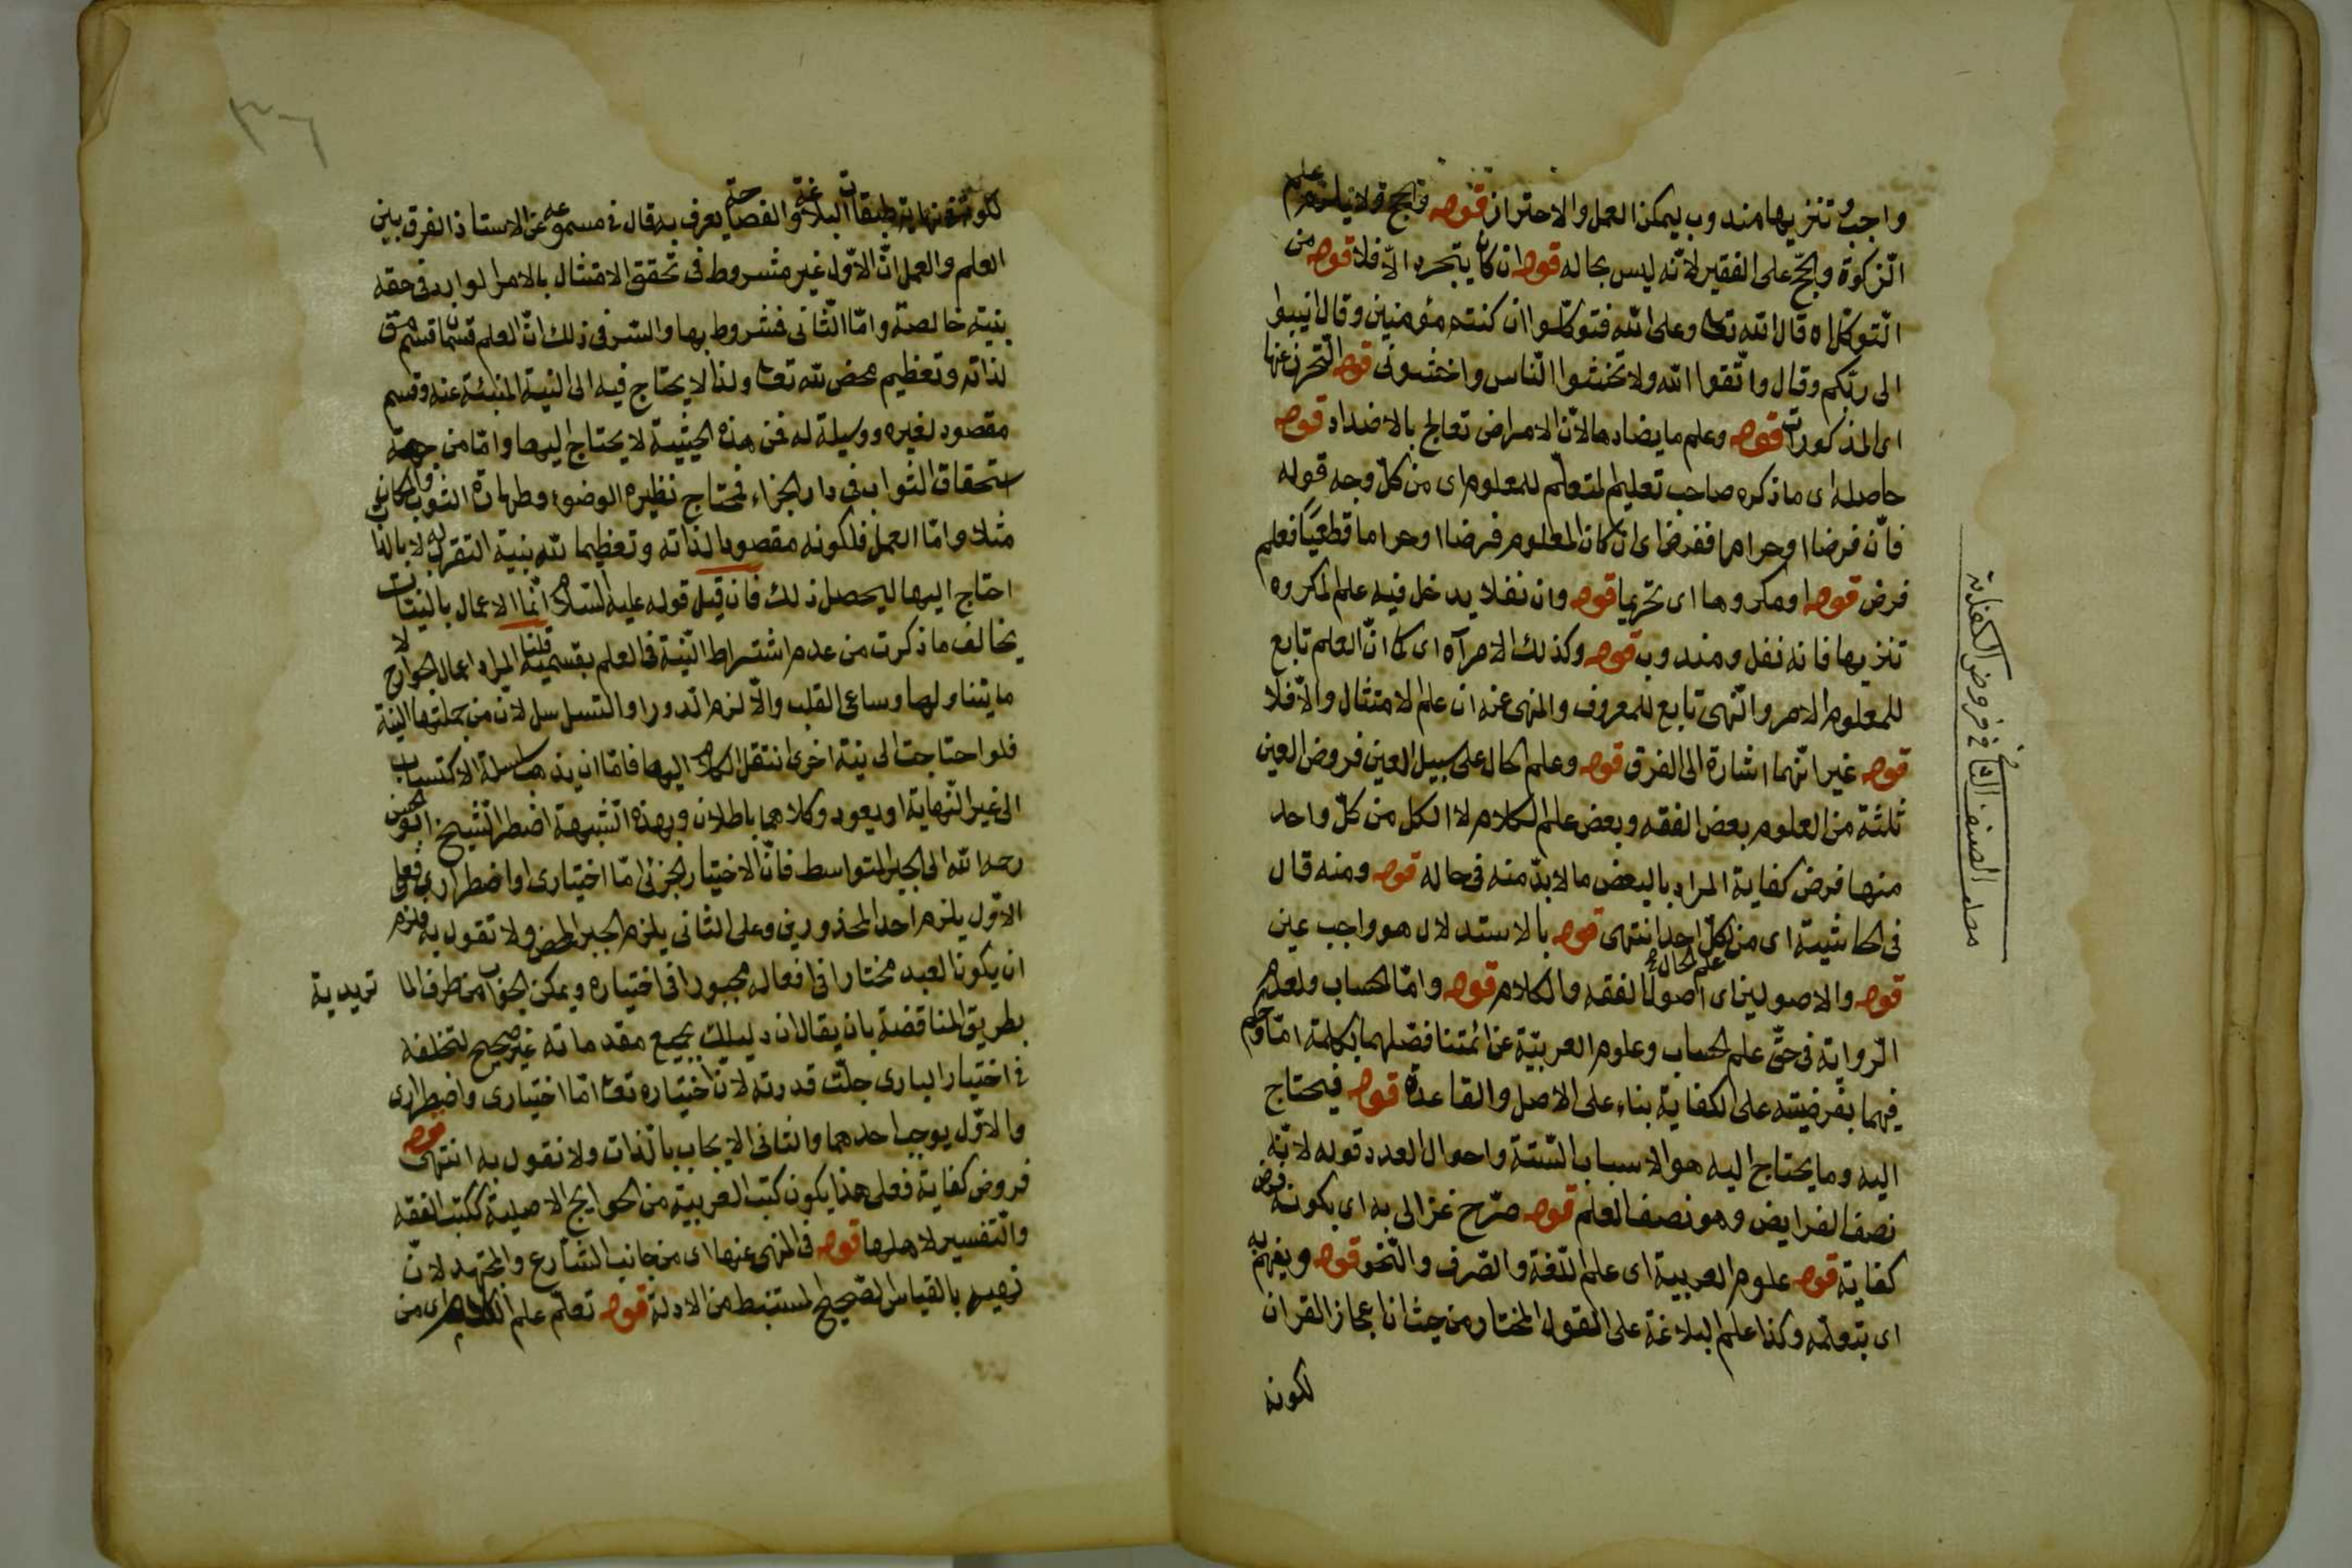 واجب وتنزيها مندوب ليمكن العمل والاحتراز قوله فالحج فلا يلزم علم
الزكوة والحج على الفقير لانه ليس بحاله قوله ان كان يتجر والا فلا قوله من
التوكل اه قال الله تعا وعلى الله فتوكلوا ان كنتم مؤمنين وقال انيبوا
الى ربكم وقال واتقوا الله ولا تخشوا الناس واخشون قوله التحرز عنها
اى المذكورات قوله وعلم ما يضادها لان الامراض تعالج بالاضداد قوله
حاصله اى ما ذكره صاحب تعليم المتعلم للمعلوم اى من كل وجه قوله
فان فرضا او حراما ففرض اى ان كان المعلوم فرضا او حراما قطعيا فعلم
فرض قوله او مكروها اى تحريما قوله وان نفلا يدخل فيه علم المكروه
تنزيها فانه نفل ومندوب قوله وكذلك الامر آه اى كما ان العلم تابع
للمعلوم الامر والنهى تابع للمعروف والمنهى عنه ان علم الامتثال والا فلا
قوله غير انهما اشارة الى الفرق قوله وعلم الحال على سبيل العين فروض العين
ثلثة من العلوم بعض الفقه وبعض علم الكلام لا الكل من كل واحد
منها فرض كفاية المراد بالبعض ما لابد منه فى حاله قوله ومنه قال
فى الحاشية اى من كل احد انتهى قوله بالاستدلال هو واجب عين
علم الحال
قوله والاصولين اى اصول الفقه والكلام قوله واما الحساب ولعدم
الرواية فى حق علم الحساب وعلوم العربية عن ائمتنا فصلهما بكلمة اما وحكم
فيهما بفرضيته على الكفاية بناء على الاصل والقاعدة قوله فيحتاج
اليه وما يحتاج اليه هو الاسباب الستة واحوال العدد قوله لانه
نصف الفرايض وهو نصف العلم قوله صرح غزالى به اى بكونه فرض
كفاية قوله علوم العربية اى علم اللغة والصرف والنحو قوله ويفهم به
اى بتعلمه وكذا علم البلاغة على القول المختار من حيث ان اعجاز القران
لكونه
الصنف الثانى فى فروض الكفاية
٣٦
لكونه فى نهاية طبقات البلاغة والفصاحة يعرف به قال فى مسموعه عن الاستاذ الفرق بين
العلم والعمل ان الاول غير مشروط فى تحقق الامتثال بالامر الوارد فى حقه
بنية خالصة واما الثانى فمشروط بها والسر فى ذلك ان العلم قسمان قسم مق
لذاته وتعظيم محض لله تعا ولذا لا يحتاج فيه الى النية المنبئة عنه وقسم
مقصود لغيره ووسيلة له فمن هذه الحيثية لا يحتاج اليها واما من جهة
استحقاق الثواب فى دار الجزاء فمحتاج نظيره الوضوء وطهارة الثوب والمكان
مثلا واما العمل فلكونه مقصودا لذاته وتعظيما لله بنية التقرب له لا بالذات
احتاج اليها ليحصل ذلك فان قيل قوله عليه السلام انما الاعمال بالنيات
يخالف ما ذكرت من عدم اشتراط النية فى العلم بقسميه قلنا المراد اعمال الجوارح لا
ما يتناولها ومساعى القلب والا لزم الدور او التسلسل لان من جملتها النية
فلو احتاجت الى نية اخرى انتقل الكلام اليها فاما ان يذهب سلسلة الاكتساب
الى غير النهاية او يعود وكلاهما باطلان وبهذه الشبهة اضطر الشيخ ابو الحسن
رحمه الله الى الجبر المتوسط فان الاختيار الجزئى اما اختيارى او اضطرارى فعلى
الاول يلزم احد المحذورين وعلى الثانى يلزم الجبر المحض ولا تقول به فلزم
ان يكون العبد مختارا فى افعاله مجبورا فى اختياره ويمكن الجواب من طرف الما تريدية
بطريق المناقضة بان يقال ان دليلك بجميع مقدماته غير صحيح لتخلفه
فى اختيار البارى جلت قدرته لان اختياره تعا اما اختيارى واضطرارى
والاول يوجب احدهما والثانى الايجاب بالذات ولا نقول به انتهى قوله
فروض كفاية فعلى هذا يكون كتب العربية من الحوايج الاصلية ككتب الفقه
والتفسير لاهلها قوله فى المنهى عنها اى من جانب الشارع والمجتهد لان
نهيه بالقياس الصحيح المستنبط من الادلة قوله تعلم علم الكلام اى من